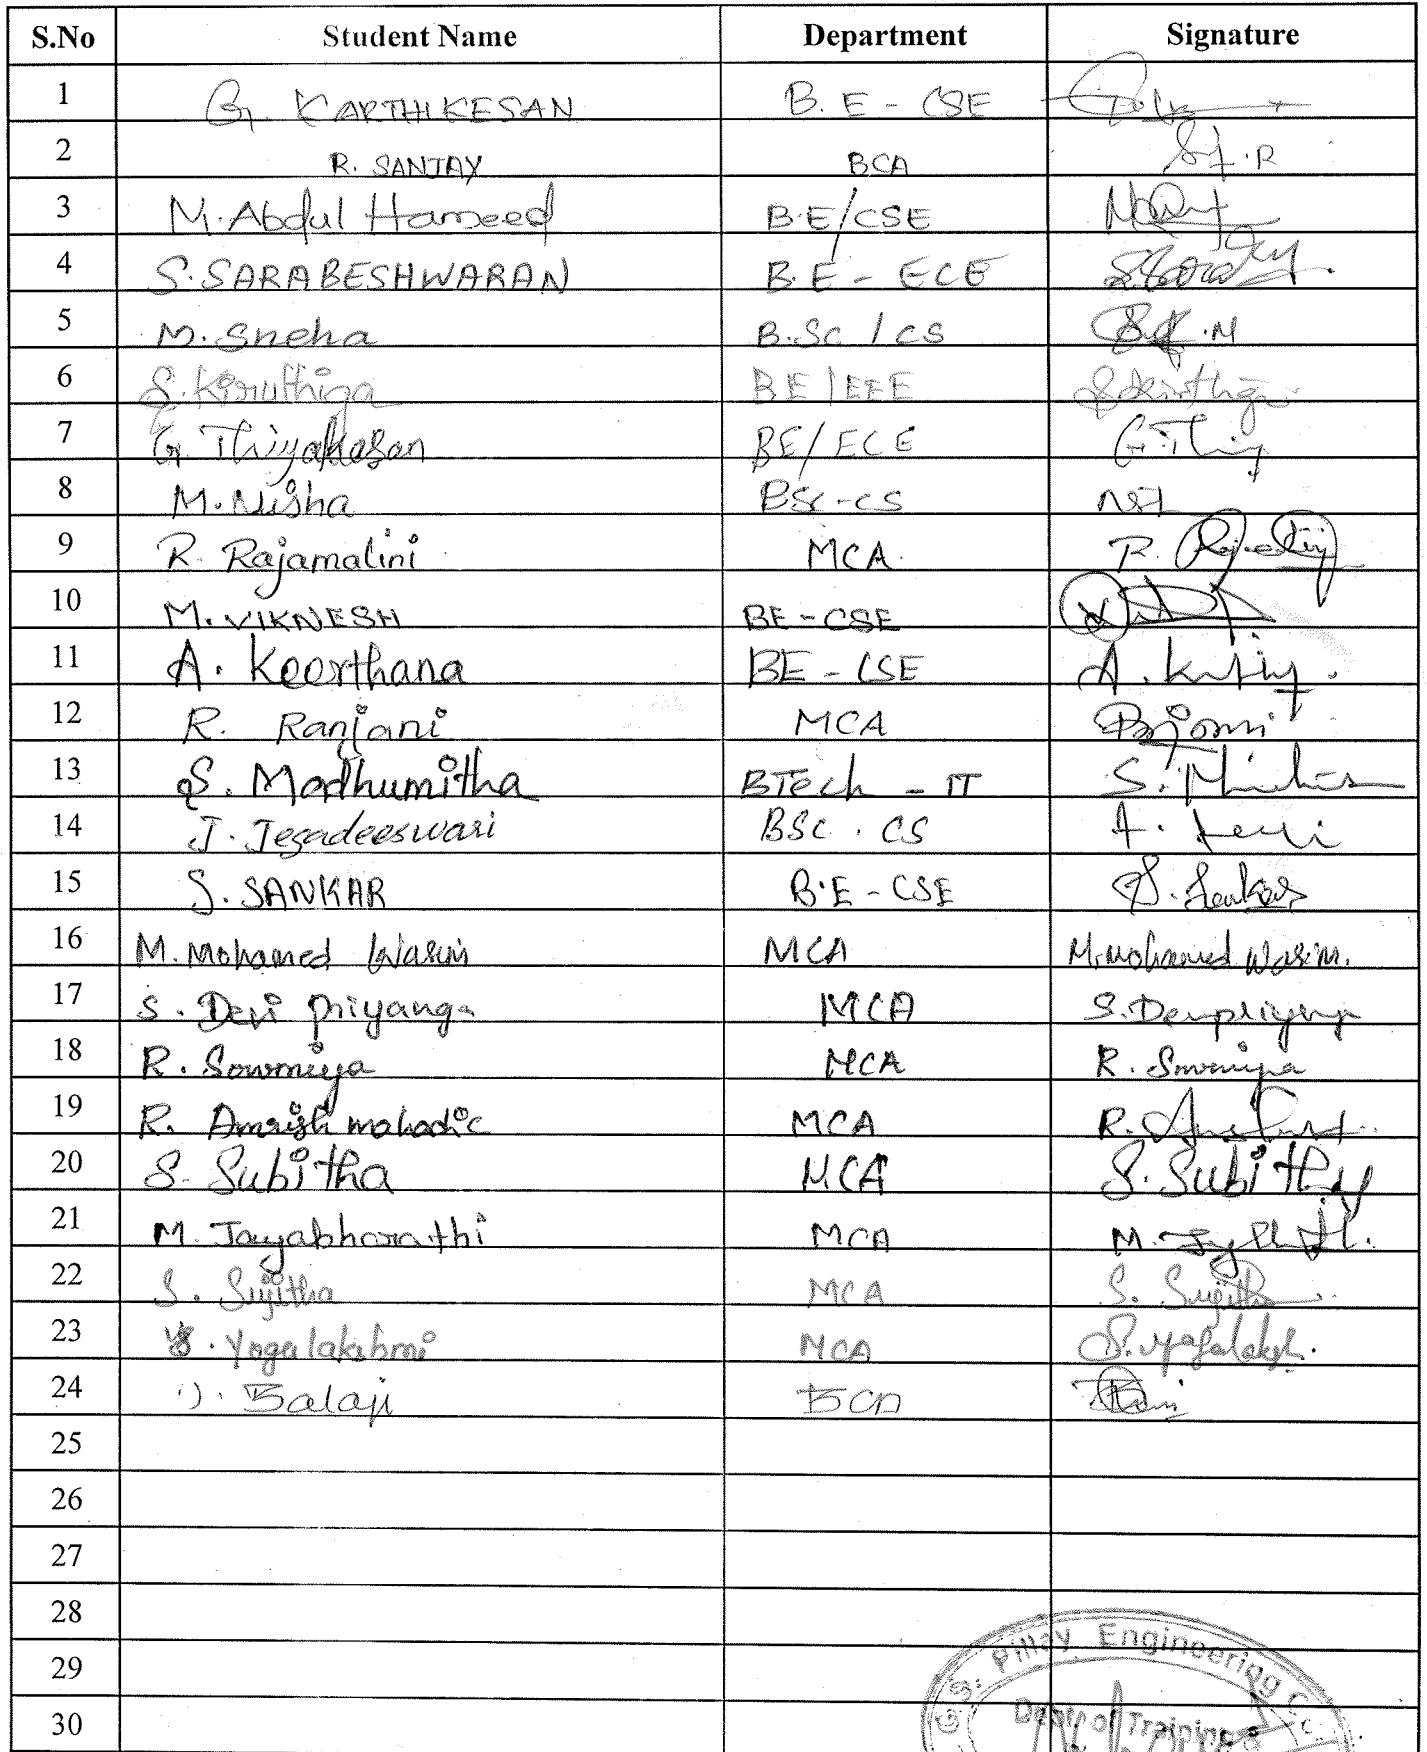 S.No Student Name Department Signature
1 G. KARTHIKESAN B.E - CSE
2 R. SANJAY BCA Sj.R
3 M. Abdul Hameed B.E/CSE
4 S. SARABESHWARAN B.E - ECE
5 M. Sneha B.Sc / CS
6 S. Kiruthiga BE/EEE
7 G. Thiyakesan BE/ECE G. Thiy
8 M. Nisha BSc-CS
9 R. Rajamalini MCA.
10 M. VIKNESH BE-CSE
11 A. Keerthana BE-CSE
12 R. Ranjani MCA
13 S. Madhumitha BTech - IT
14 J. Jegadeeswari BSC. CS
15 S. SANKAR B.E - CSE S. Sankar
16 M. Mohamed Wasim MCA M. Mohamed Wasim.
17 S. Devi priyanga MCA S. Devpriyanga
18 R. Sowmiya MCA R. Sowmiya
19 R. Amrish mahadic MCA
20 S. Subitha MCA S. Subitha
21 M. Jayabharathi MCA
22 S. Sujitha MCA S. Sujitha
23 S. Yogalakshmi MCA S. Yogalaksh.
24 D. Balaji BCA
25
26
27
28
29
30
G.S. Pillay Engineering C
Dept of Training &